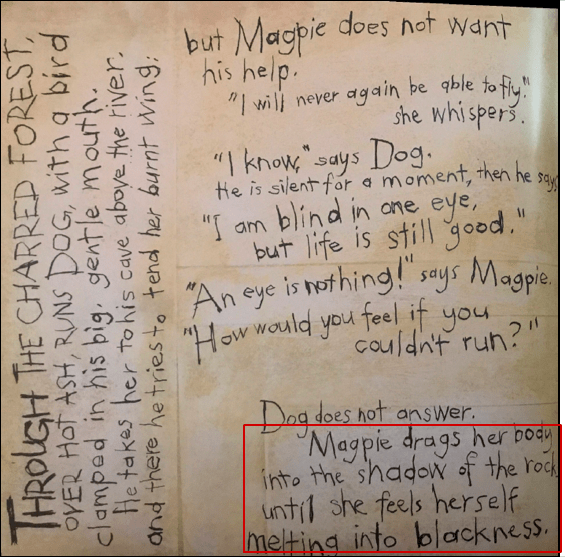 THROUGH THE CHARRED FOREST,
OVER HOT ASH, RUNS DOG, with a bird
clamped in his big, gentle mouth.
He takes her to his cave above the river,
and there he tries to tend her burnt wing:
but Magpie does not want
his help.
"I will never again be able to fly."
she whispers.
"I know," says Dog.
He is silent for a moment, then he says
"I am blind in one eye,
but life is still good."
"An eye is nothing!" says Magpie.
"How would you feel if you
couldn't run?"
Dog does not answer.
Magpie drags her body
into the shadow of the rock
until she feels herself
melting into blackness.